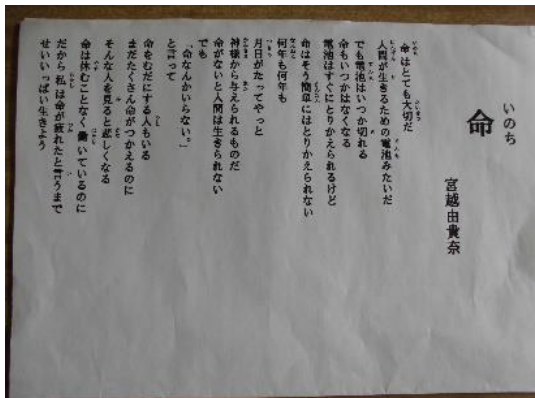 いのち
命
宮越由貴奈
命はとても大切だ
人間が生きるための電池みたいだ
でも電池はいつか切れる
命もいつかはなくなる
電池はすぐにとりかえられるけど
命はそう簡単にはとりかえられない
何年も何年も
月日がたってやっと
神様から与えられるものだ
命がないと人間は生きられない
でも
「命なんかいらない。」
と言って
命をむだにする人もいる
まだたくさん命がつかえるのに
そんな人を見ると悲しくなる
命は休むことなく働いているのに
だから私は命が疲れたと言うまで
せいいっぱい生きよう